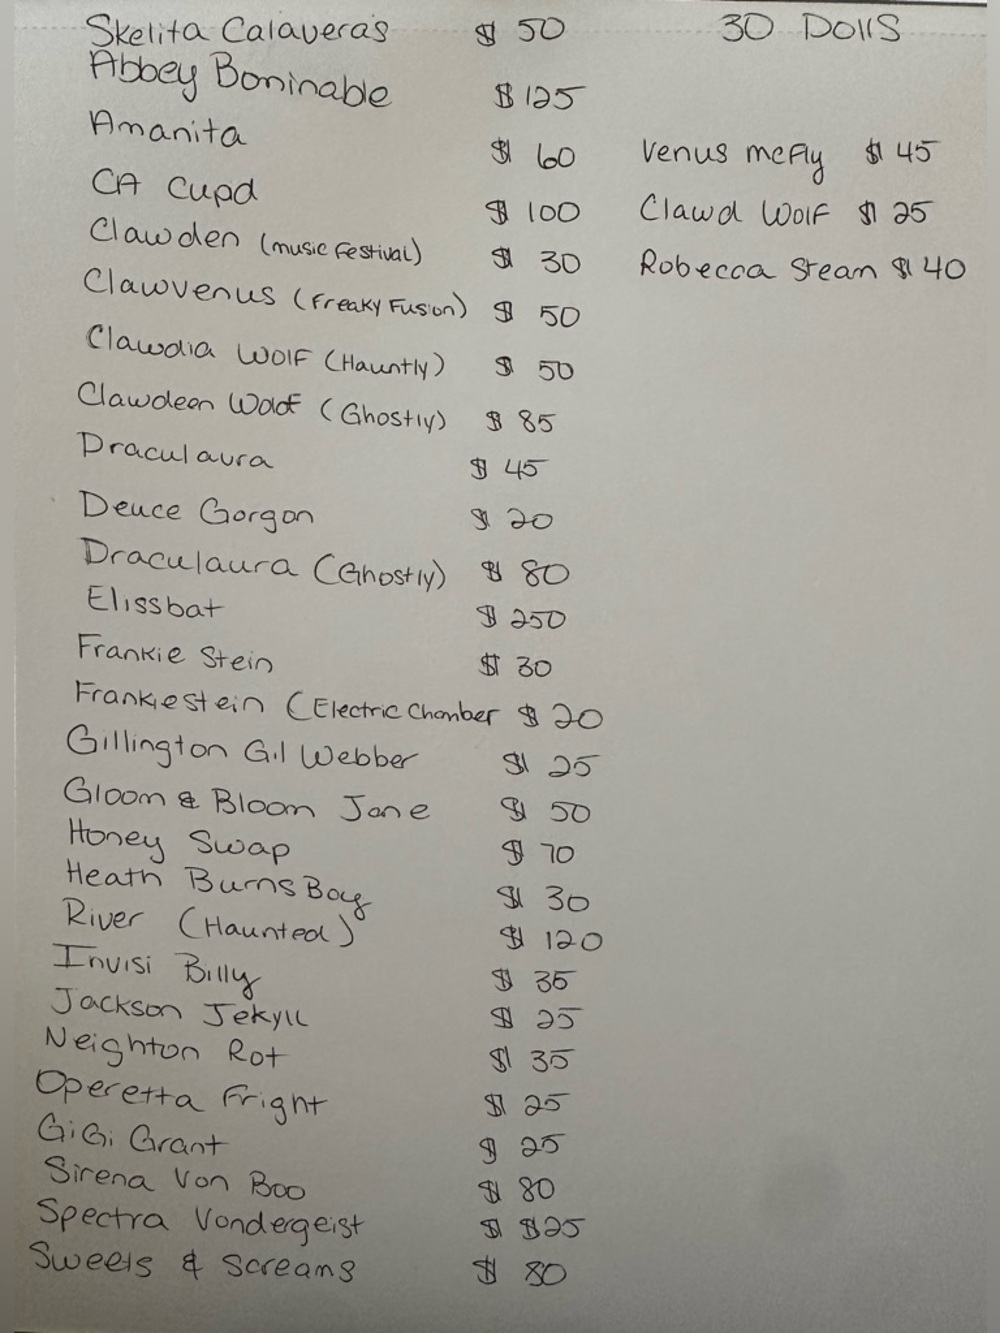 Skelita Calaveras $ 50
30 Dolls
Abbey Bominable $ 125
Amanita $ 60
Venus mcfly $ 45
CA Cupd $ 100
Clawd Wolf $ 25
Clawden (music Festival) $ 30
Robecca Steam $ 40
Clawvenus (Freaky Fusion) $ 50
Clawdia Wolf (Hauntly) $ 50
Clawdeen Wolf (Ghostly) $ 85
Draculaura $ 45
Deuce Gorgon $ 20
Draculaura (Ghostly) $ 80
Elissbat $ 250
Frankie Stein $ 30
Frankiestein (Electric Chamber $ 20
Gillington Gil Webber $ 25
Gloom & Bloom Jane $ 50
Honey Swap $ 70
Heath Burns Boy $ 30
River (Haunted) $ 120
Invisi Billy $ 35
Jackson Jekyll $ 25
Neighton Rot $ 35
Operetta Fright $ 25
GiGi Grant $ 25
Sirena Von Boo $ 80
Spectra Vondergeist $ $25
Sweets & Screams $ 80